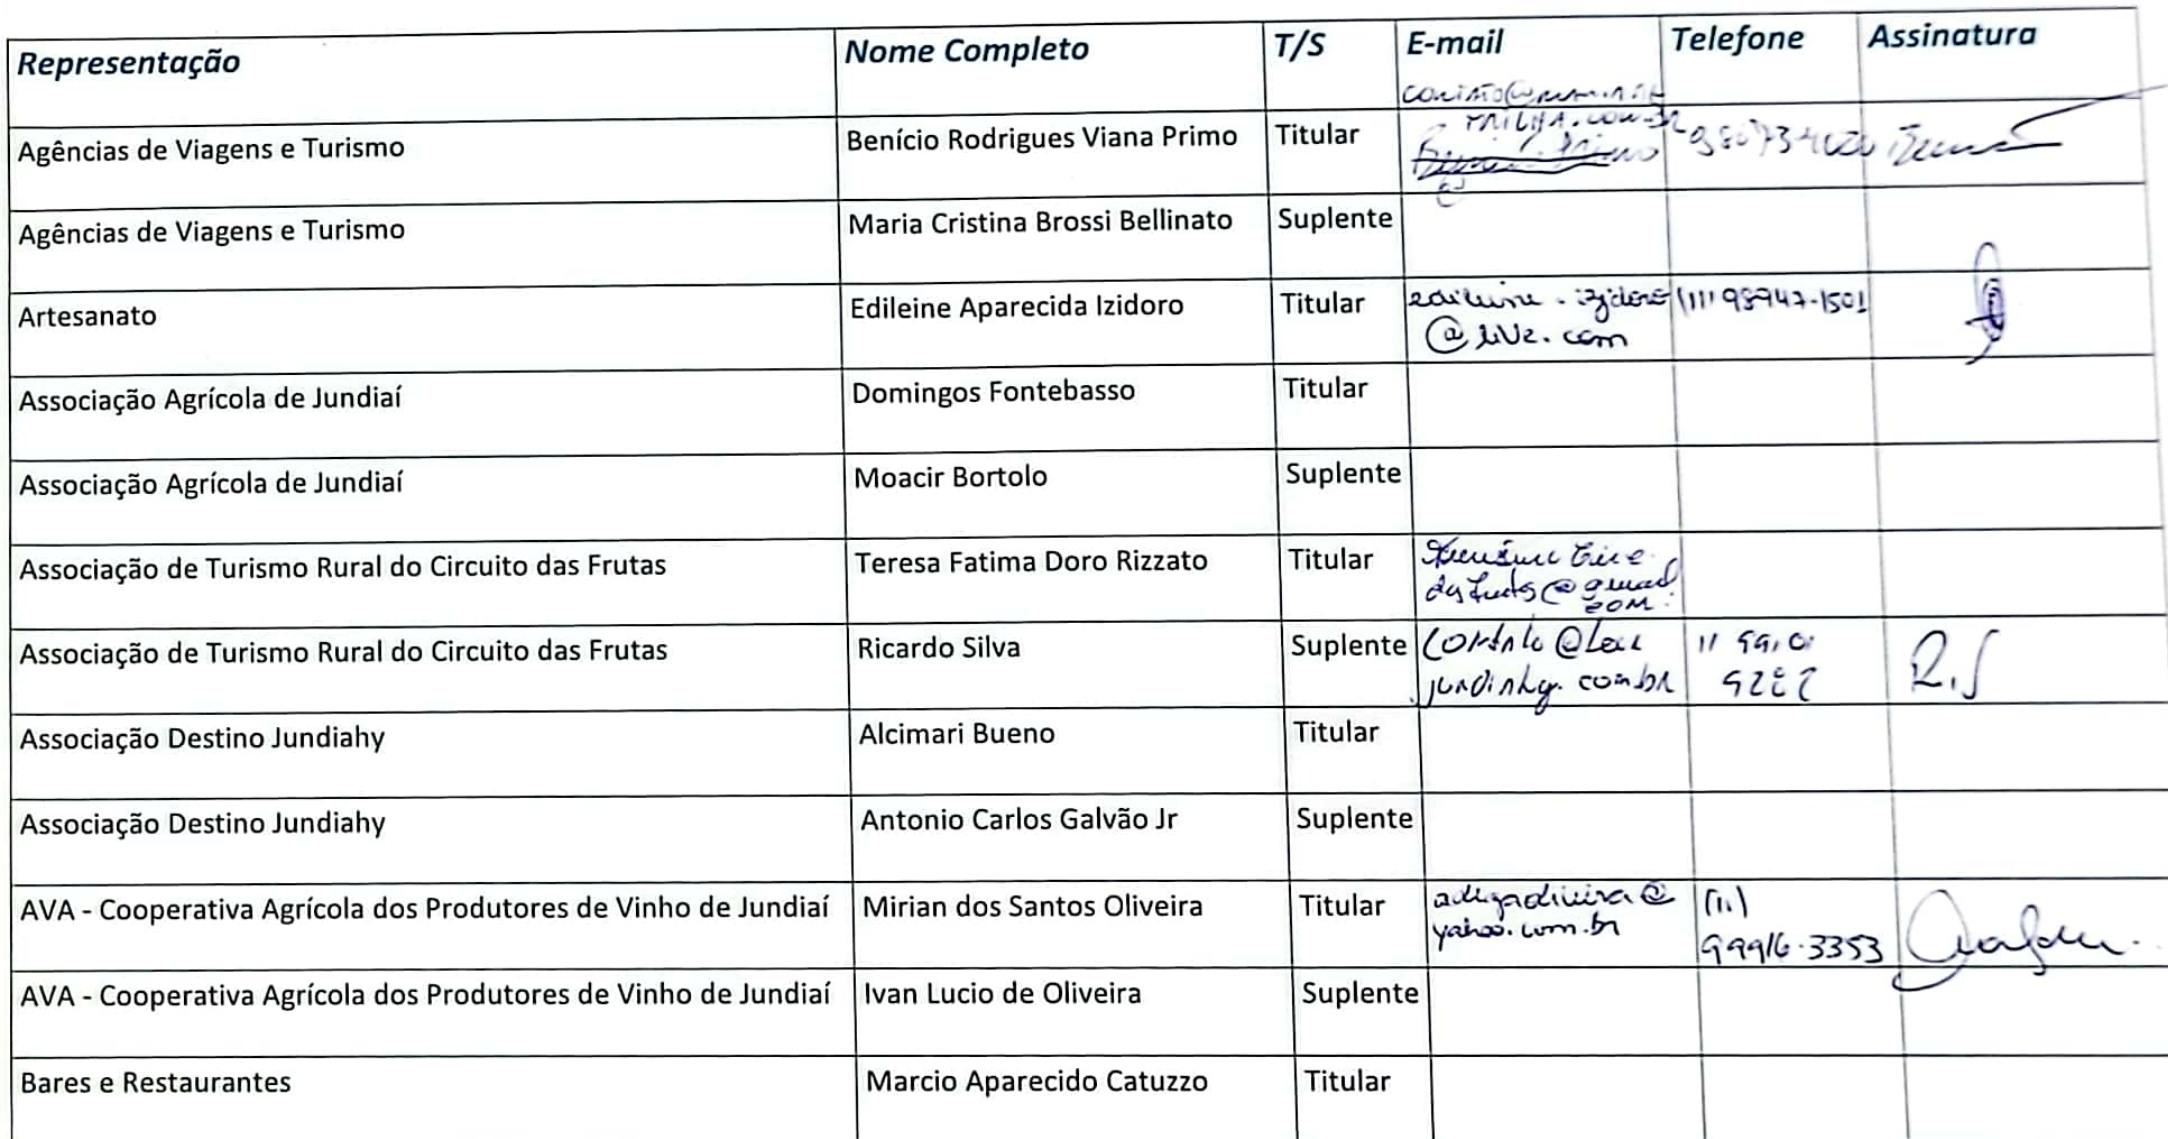 Representação Nome Completo T/S E-mail Telefone Assinatura
Agências de Viagens e Turismo Benício Rodrigues Viana Primo Titular
Agências de Viagens e Turismo Maria Cristina Brossi Bellinato Suplente
Artesanato Edileine Aparecida Izidoro Titular edileine.izidoro (11) 98947-1501
@live.com
Associação Agrícola de Jundiaí Domingos Fontebasso Titular
Associação Agrícola de Jundiaí Moacir Bortolo Suplente
Associação de Turismo Rural do Circuito das Frutas Teresa Fatima Doro Rizzato Titular
Associação de Turismo Rural do Circuito das Frutas Ricardo Silva Suplente
R.S
Associação Destino Jundiahy Alcimari Bueno Titular
Associação Destino Jundiahy Antonio Carlos Galvão Jr Suplente
AVA - Cooperativa Agrícola dos Produtores de Vinho de Jundiaí Mirian dos Santos Oliveira Titular (11)
yahoo.com.br 99916-3353
AVA - Cooperativa Agrícola dos Produtores de Vinho de Jundiaí Ivan Lucio de Oliveira Suplente
Bares e Restaurantes Marcio Aparecido Catuzzo Titular